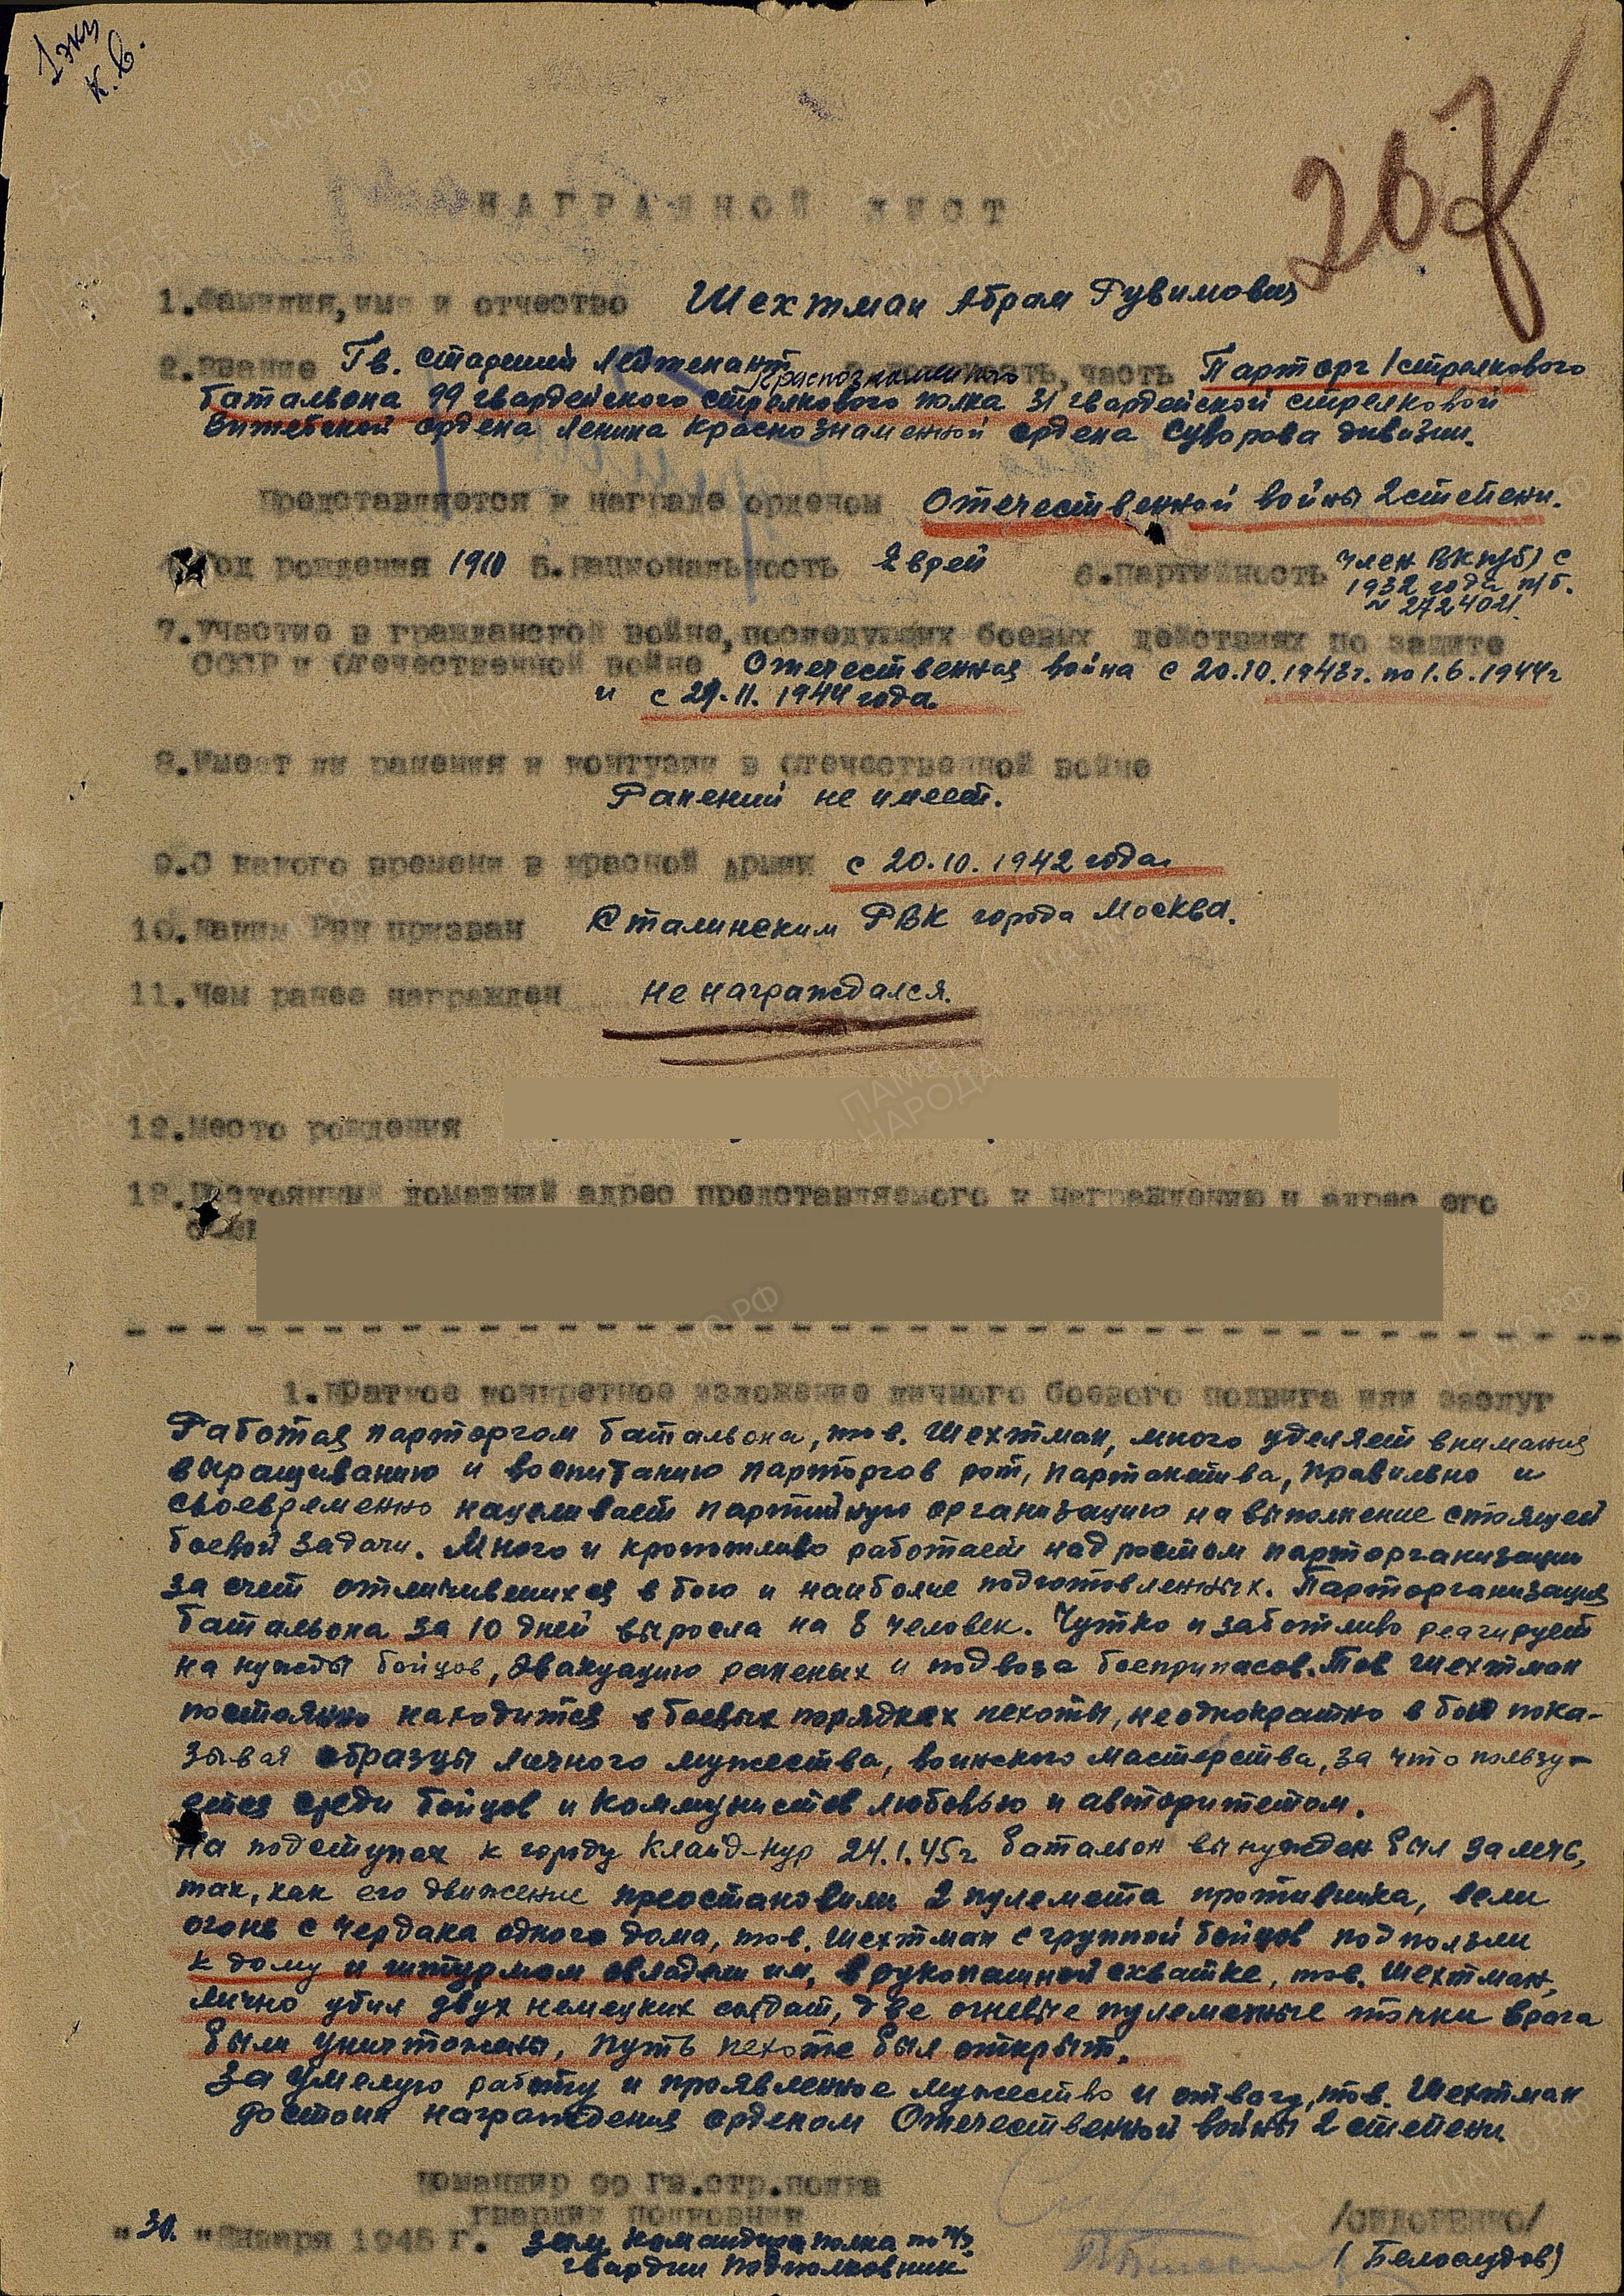 1 экз
К. В.
267
НАГРАДНОЙ ЛИСТ
1.Фамилия, имя и отчество Шехтман Абрам Рувимович
2.Звание Гв. Старший Лейтенант
Краснознаменного
часть Парторг 1 стрелкового
батальона 99 гвардейского стрелкового полка 31 гвардейской стрелковой
Витебской ордена Ленина Краснознаменной ордена Суворова дивизии.
Представляется к награде орденом Отечественной войны 2 степени.
Год рождения 1910 5.Национальность Еврей 6.Партийность член ВКП(б) с
1932 года п/б.
№ 2724021.
7.Участие в гражданской войне, последующих боевых действиях по защите
СССР и Отечественной войне Отечественная война с 20.10.1943г. по 1.6.1944г
и с 29.11.1944 года.
8.Имеет ли ранения и контузии в Отечественной войне
Ранений не имеет.
9.С какого времени в Красной Армии с 20.10.1942 года.
10.Каким РВК призван Сталинским РВК города Москва.
11.Чем ранее награжден не награждался.
12.Место рождения
13.Постоянный домашний адрес представляемого к награждению и адрес его
1.Краткое конкретное изложение личного боевого подвига или заслуг
Работая парторгом батальона, тов. Шехтман, много уделяет внимания
выращиванию и воспитанию парторгов рот, партактива, правильно и
своевременно нацеливает партийную организацию на выполнение стоящей
боевой задачи. Много и кропотливо работает над ростом парторганизации
за счет отличившихся в бою и наиболее подготовленных. Парторганизация
батальона за 10 дней выросла на 8 человек. Чутко и заботливо реагирует
на нужды бойцов, эвакуацию раненых и подвоза боеприпасов. Тов Шехтман
постоянно находится в боевых порядках пехоты, неоднократно в бою пока-
зывая образцы личного мужества, воинского мастерства, за что пользу-
ется среди бойцов и коммунистов любовью и авторитетом.
На подступах к городу Клайд-Нур 24.1.45г. батальон вынужден был залечь,
так, как его движение преостановили 2 пулемета противника, вели
огонь с чердака одного дома, тов. Шехтман с группой бойцов подползли
к дому и штурмом овладели им, в рукопашной схватке, тов. Шехтман,
лично убил двух немецких солдат, две огневые пулеметные точки врага
были уничтожены, путь пехоте был открыт.
За умелую работу и проявленное мужество и отвагу, тов. Шехтман
достоин награждения орденом Отечественной войны 2 степени.
Командир 99 Гв.стр.полка
гвардии полковник /СИДОРЕНКО/
"30." Января 1945 г. Зам. командира полка по п/ч
гвардии подполковник (Белоаудов)
ПАМЯТЬ НАРОДА
ЦАМО.РФ